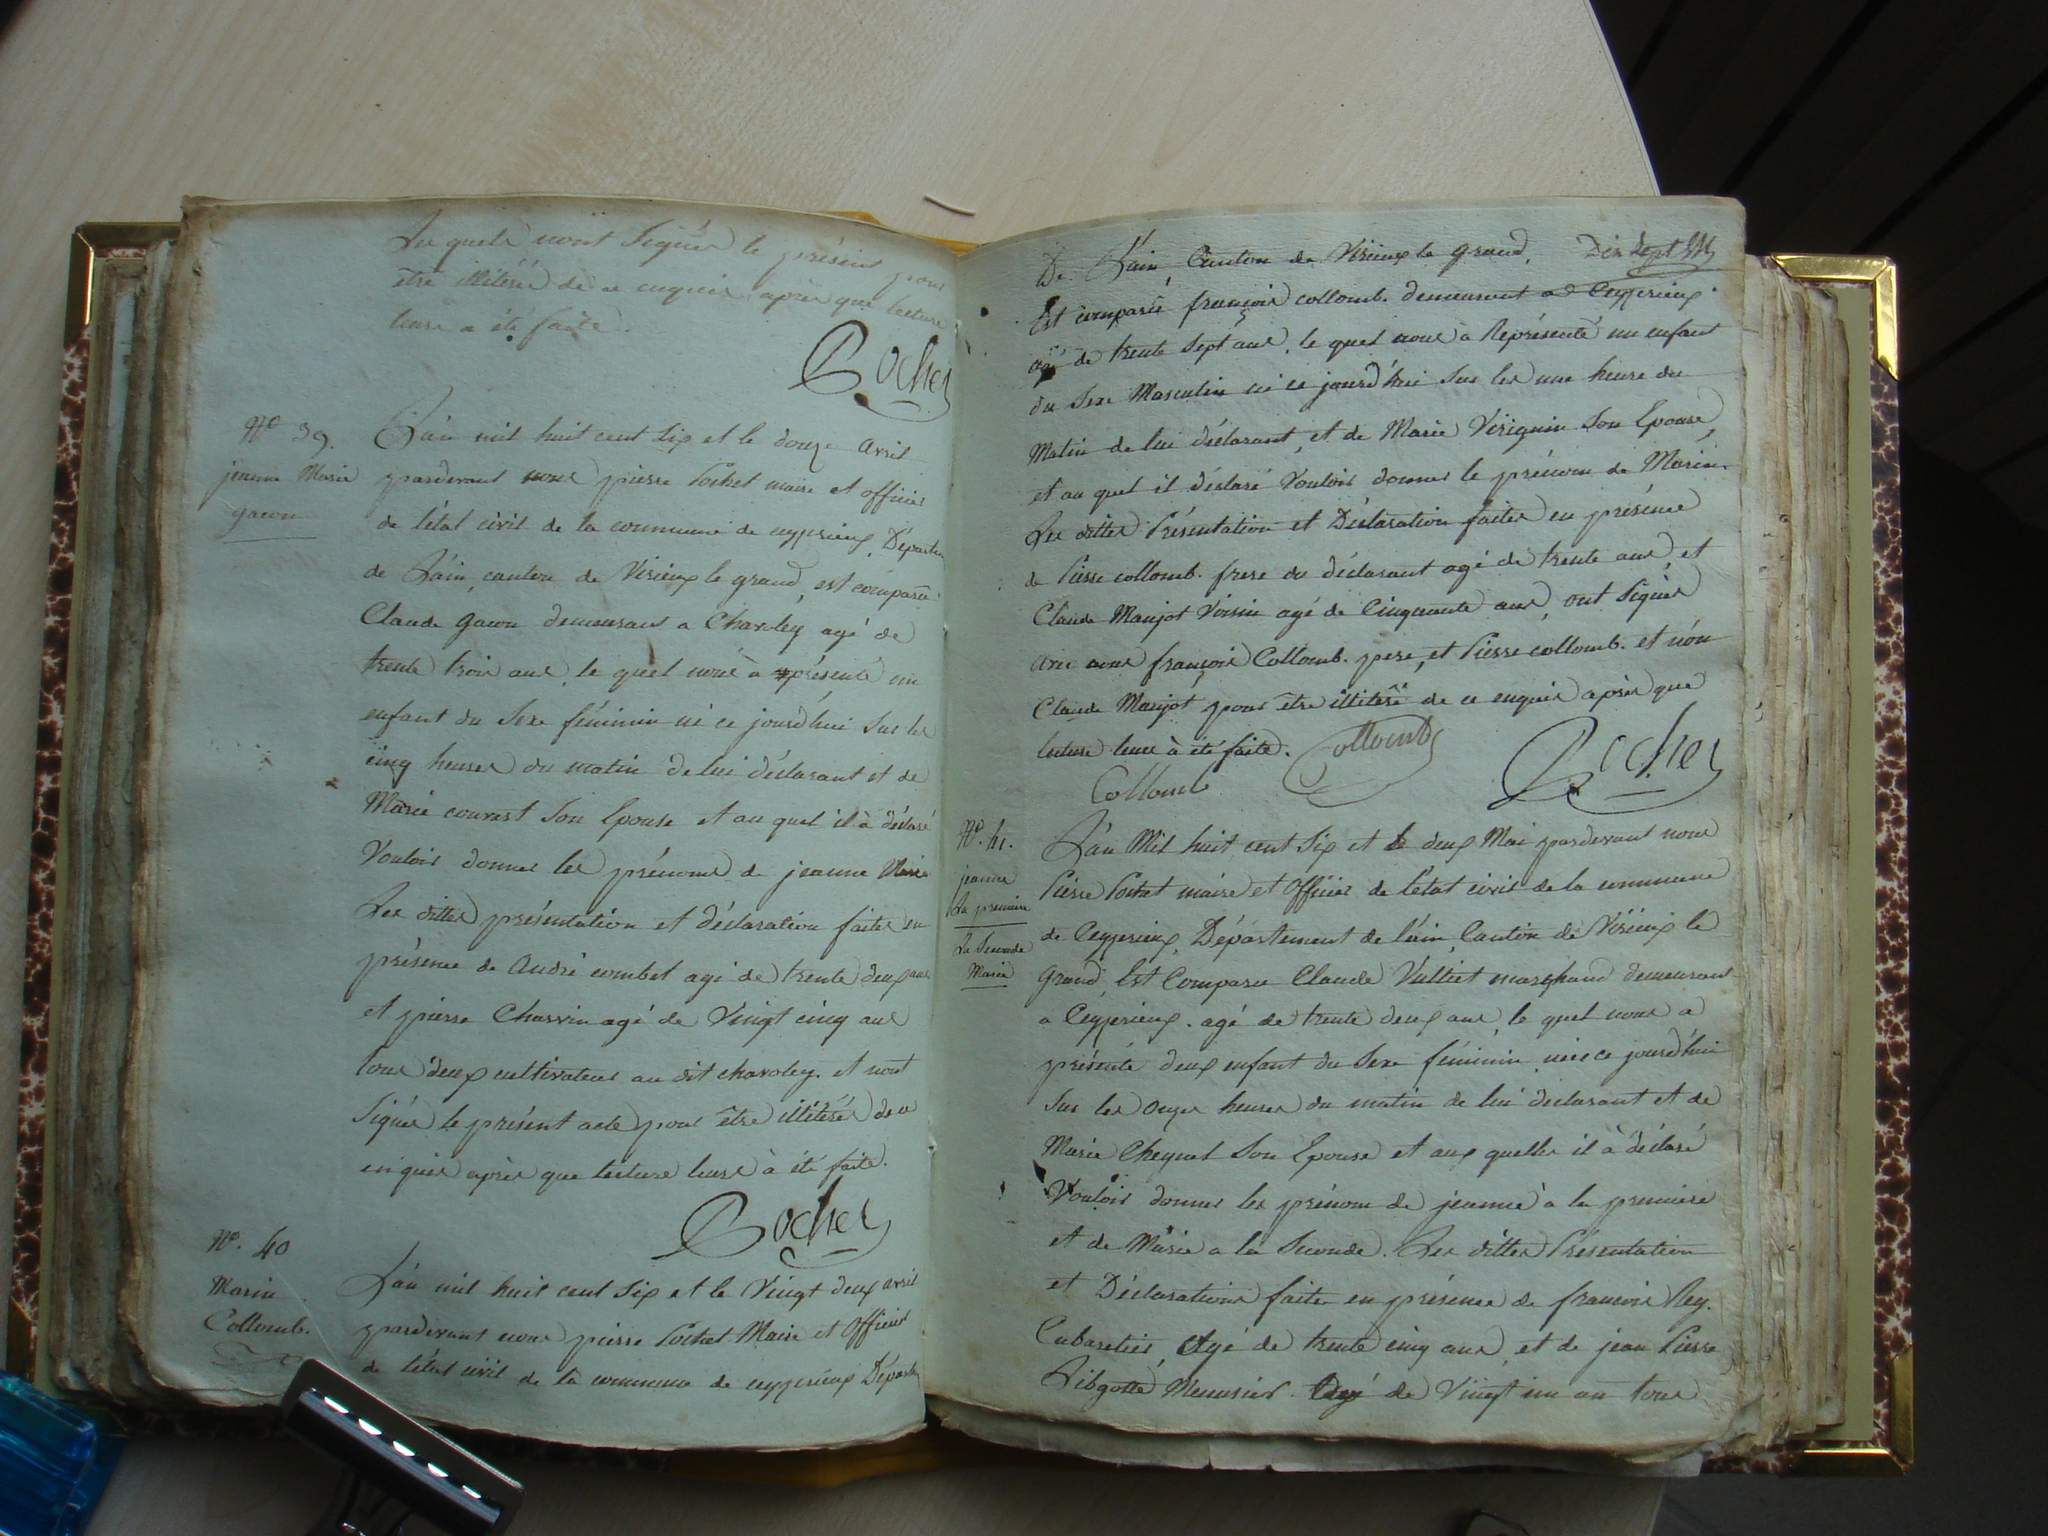 Les quels n'ont signés le présent pour
être illitéré de ce enquis après que lecture
leurs a été faite.
Pochet
N.º 39.
jeanne Marie
gacon
L'an mil huit cent six et le douze avril
pardevant nous pierre Pochet maire et officier
de l'état civil de la commune de ceyzerieux, Départem
de L'ain, canton de Virieux le grand, est comparu
Claude gacon demeurant a Charoley agé de
trente trois ans, le quel nous à présenté un
enfant du sexe féminin né ce jourd'hui sur les
cinq heures du matin de lui déclarant et de
Marie son Epouse et au quel il à déclaré
Vouloir donner les prénoms de jeanne Marie
Les dittes présentation et déclaration faites en
présence de André combet agé de trente deux ans
et pierre Charvin agé de Vingt cinq ans
tous deux cultivateurs au dit charoley. et n'ont
signés le présent acte pour être illitérés de ce
enquis après que lecture leurs à été faite.
Pochet
N.º 40
Marin
Collomb.
L'an mil huit cent six et le Vingt deux avril
pardevant nous pierre Pochet Maire et Officier
de l'état civil de la commune de ceyzerieux Départem
De L'ain, Canton de Virieux le grand, Dix Sept
Est comparu françois collomb. demeurant a Ceyzerieux
agé de trente sept ans, le quel nous a Représenté un enfant
du sexe Masculin né ce jourd'hui sur les une heure du
Matin de lui déclarant, et de Marie Virignin Son Epouse,
et au quel il déclaré Vouloir donner le prénom de Marin.
Les dittes Présentation et Déclaration faites en présence
de Pierre collomb. frere du déclarant agé de trente ans, et
Claude Manjot Voisin agé de Cinquante ans, ont signés
avec nous françois Collomb. pere, et Pierre collomb. et non
Claude Manjot, pour être illiteré de ce enquis après que
lecture leurs à été faite. Collomb
Collomb Pochet
N.º 41.
jeanne
La premiere
La Seconde
Marie
L'an Mil huit cent six et le deux Mai pardevant nous
Pierre Pochet maire et Officier de l'état civil de la commune
de Ceyzerieux, Département de l'ain, Canton de Virieux le
Grand, Est Comparu Claude Vulliet marchand demeurant
a Ceyzerieux. agé de trente deux ans, le quel nous a
présenté deux enfant du sexe féminin née ce jourd'hui
sur les onzes heures du matin de lui déclarant et de
Marie Cheynet Son Epouse et aux quelles il à déclaré
Vouloir donner les prénoms de jeanne à la premiere
et de Marie a la Seconde. Les dittes Présentation
et Déclarations faites en présence de françois Rey.
Cabaretier, Agé de trente cinq ans, et de jean Pierre
Menusier. Agé de Vingt un an tous